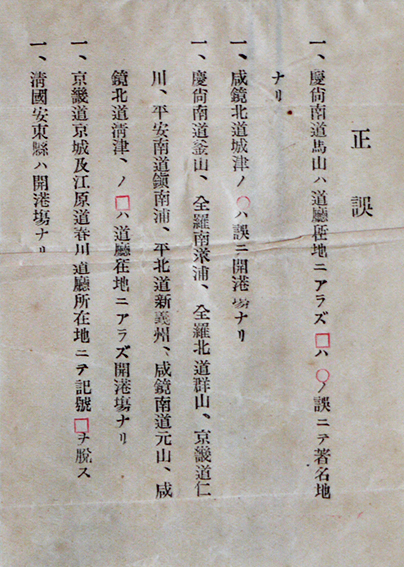 正誤
一、慶尙南道馬山ハ道廳在地ニアラズ□ハ○ノ誤ニテ著名地
ナリ
一、咸鏡北道城津ノ○ハ誤ニ開港場ナリ
一、慶尙南道釜山、全羅南道木浦、全羅北道群山、京畿道仁
川、平安南道鎭南浦、平北道新義州、咸鏡南道元山、咸
鏡北道淸津、ノ□ハ道廳在地ニアラズ開港塲ナリ
一、京畿道京城及江原道春川道廳所在地ニテ記號□ヲ脫ス
一、淸國安東縣ハ開港塲ナリ